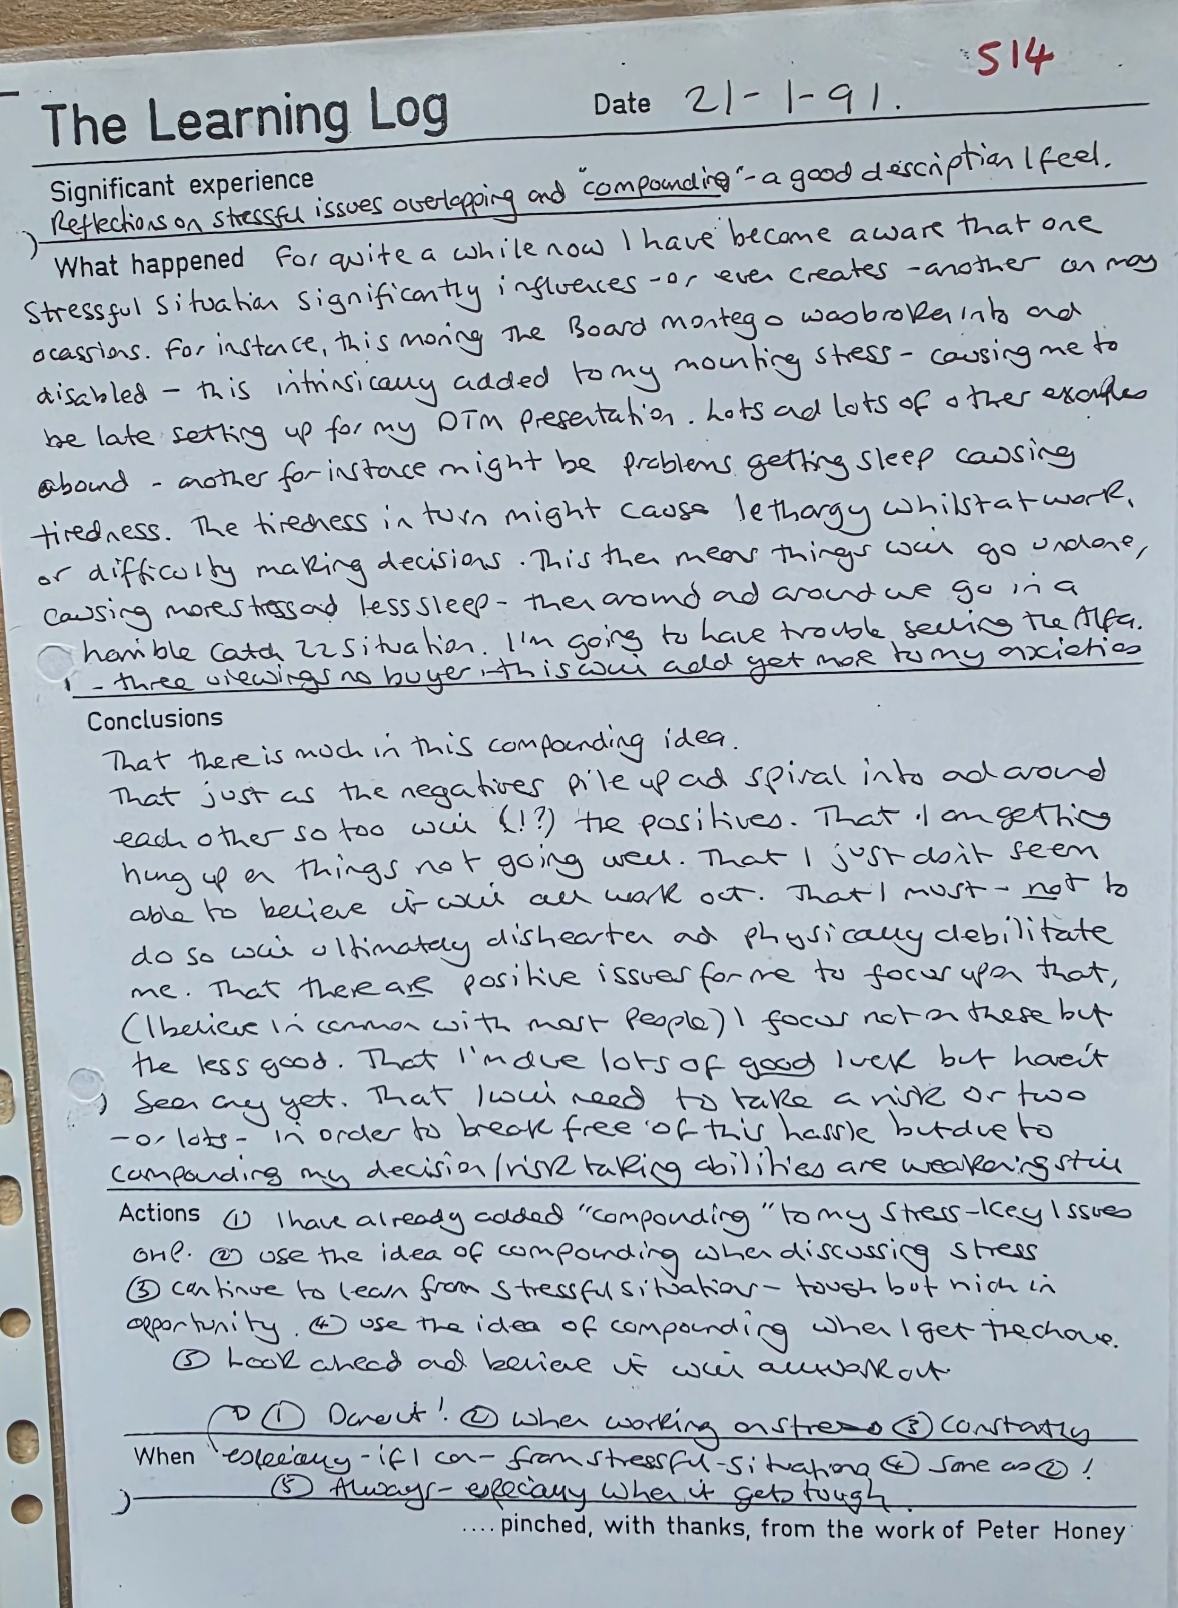 514
The Learning Log Date 21-1-91.
Significant experience
Reflections on stressful issues overlapping and "compounding" - a good description I feel.
What happened For quite a while now I have become aware that one
stressful situation significantly influences - or even creates - another on many
ocassions. For instance, this morning the Board montego was broken into and
disabled - this intrinsically added to my mounting stress - causing me to
be late setting up for my DTM presentation. Lots and lots of other examples
abound - another for instance might be problems getting sleep causing
tiredness. The tiredness in turn might cause lethargy whilst at work,
or difficulty making decisions. This then means things will go undone,
causing more stress and less sleep - then around and around we go in a
horrible catch 22 situation. I'm going to have trouble selling the Alfa.
- three viewings no buyer - this will add yet more to my anxieties
Conclusions
That there is much in this compounding idea.
That just as the negatives pile up and spiral into and around
each other so too will (!?) the positives. That I am getting
hung up on things not going well. That I just don't seem
able to believe it will all work out. That I must - not to
do so will ultimately dishearten and physically debilitate
me. That there are positive issues for me to focus upon that,
(I believe in common with most people) I focus not on these but
the less good. That I'm due lots of good luck but haven't
seen any yet. That I will need to take a risk or two
- or lots - in order to break free of this hassle but due to
compounding my decision/risk taking abilities are weakening still
Actions ① I have already added "compounding" to my stress-key issues
OHP. ② use the idea of compounding when discussing stress
③ continue to learn from stressful situations - tough but rich in
opportunity. ④ use the idea of compounding when I get the chance.
⑤ Look ahead and believe it will all work out.
① Done it! ② when working on stress ③ constantly
When especially - if I can - from stressful situations ④ same as ②!
⑤ Always - especially when it gets tough.
.... pinched, with thanks, from the work of Peter Honey